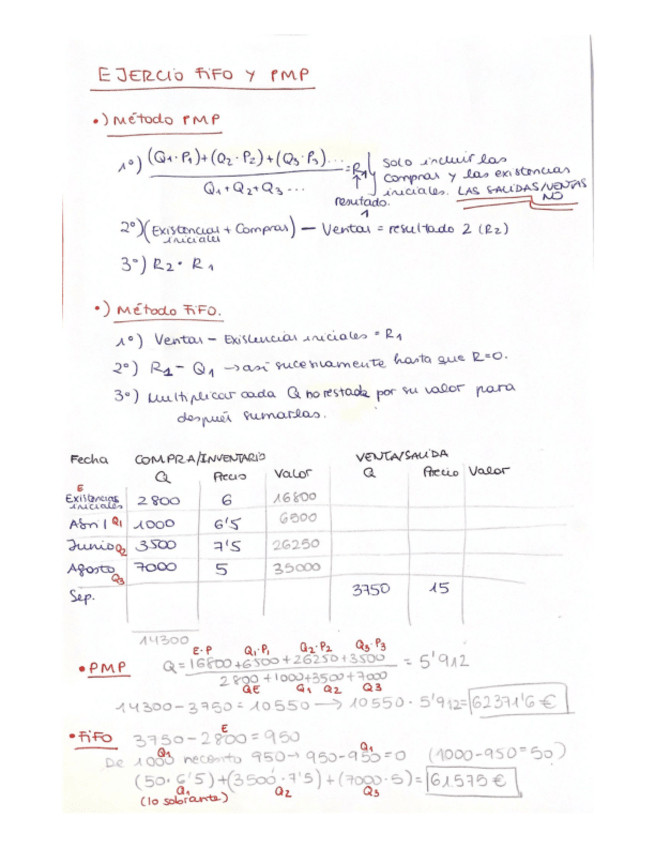 EJERCIO FIFO Y PMP
•) Método PMP
1º) (Q1·P1)+(Q2·P2)+(Q3·P3)... = R1
Q1+Q2+Q3...
resultado.
1
Solo incluir las
compras y las existencias
iniciales. LAS SALIDAS/VENTAS
NO
2º) (Existencias iniciales + Compras) − Ventas = resultado 2 (R2)
3º) R2 · R1
•) Método FIFO.
1º) Ventas − Existencias iniciales = R1
2º) R1 − Q1 → así sucesivamente hasta que R=0.
3º) Multiplicar cada Q no restada por su valor para
después sumarlas.
Fecha COMPRA/INVENTARIO VENTA/SALIDA
Q Precio Valor Q Precio Valor
E
Existencias iniciales 2800 6 16800
Abril Q1 1000 6'5 6500
Junio Q2 3500 7'5 26250
Agosto Q3 7000 5 35000
Sep. 3750 15
14300
E·P Q1·P1 Q2·P2 Q3·P3
• PMP Q= 16800+6500+26250+3500 = 5'912
2800+1000+3500+7000
QE Q1 Q2 Q3
14300−3750=10550 → 10550·5'912= 62371'6 €
E
• FIFO 3750−2800=950
Q1 Q1
De 1000 neconto 950→ 950−950=0 (1000−950=50)
(50·6'5)+(3500·7'5)+(7000·5)= 61575 €
Q1 Q2 Q3
(lo sobrante)